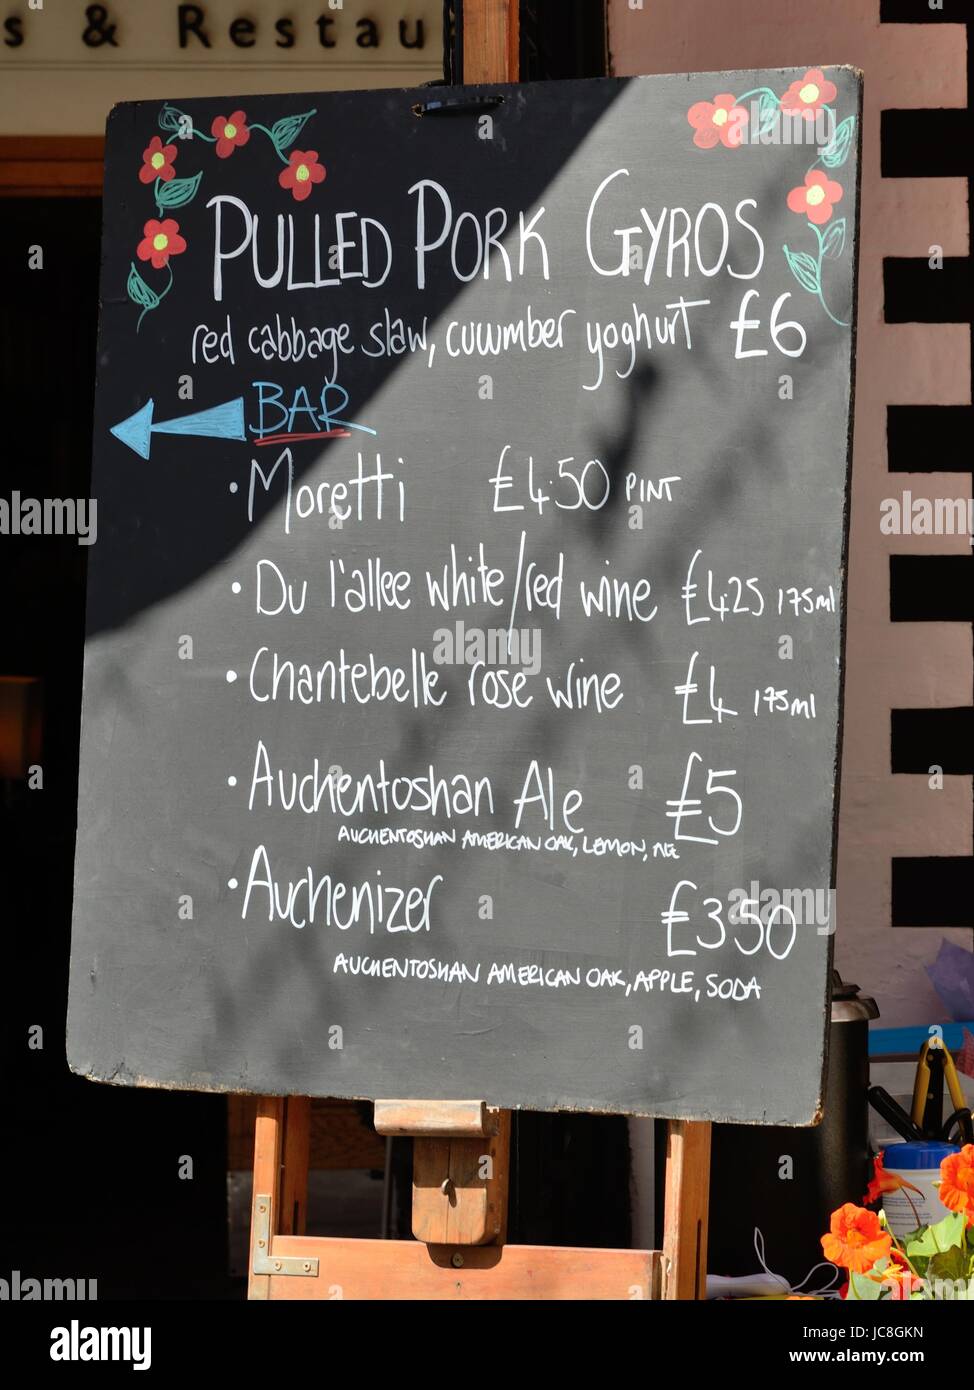 s & Restau
PULLED PORK GYROS
red cabbage slaw, cucumber yoghurt £6
BAR
• Moretti £4.50 PINT
• Du l'allee white/red wine £4.25 175ml
• Chantebelle rose wine £4 175ml
• Auchentoshan Ale £5
AUCHENTOSHAN AMERICAN OAK, LEMON, ALE
• Auchenizer £350
AUCHENTOSHAN AMERICAN OAK, APPLE, SODA
alamy
Image ID: JC8GKN
www.alamy.com